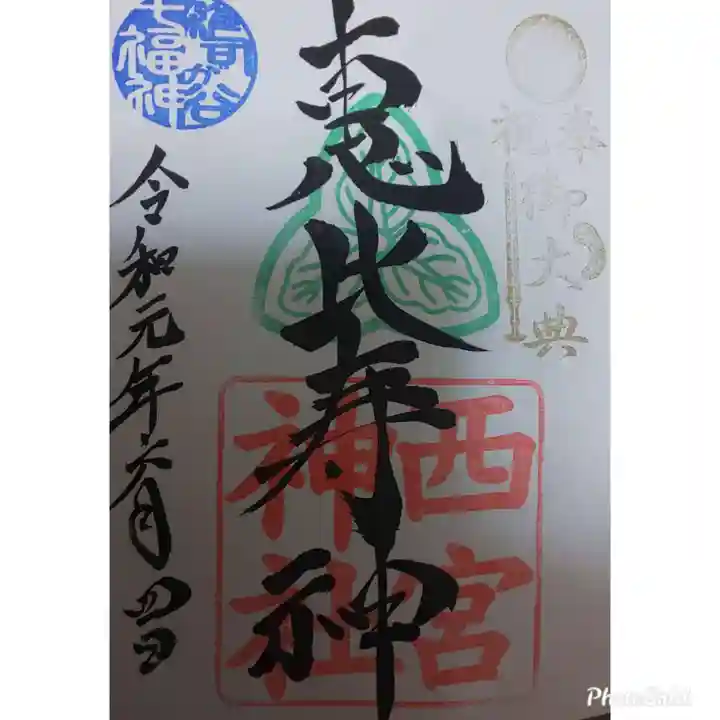 奉祝
御大典
恵比寿神
西宮
神社
七福神
令和元年六月四日